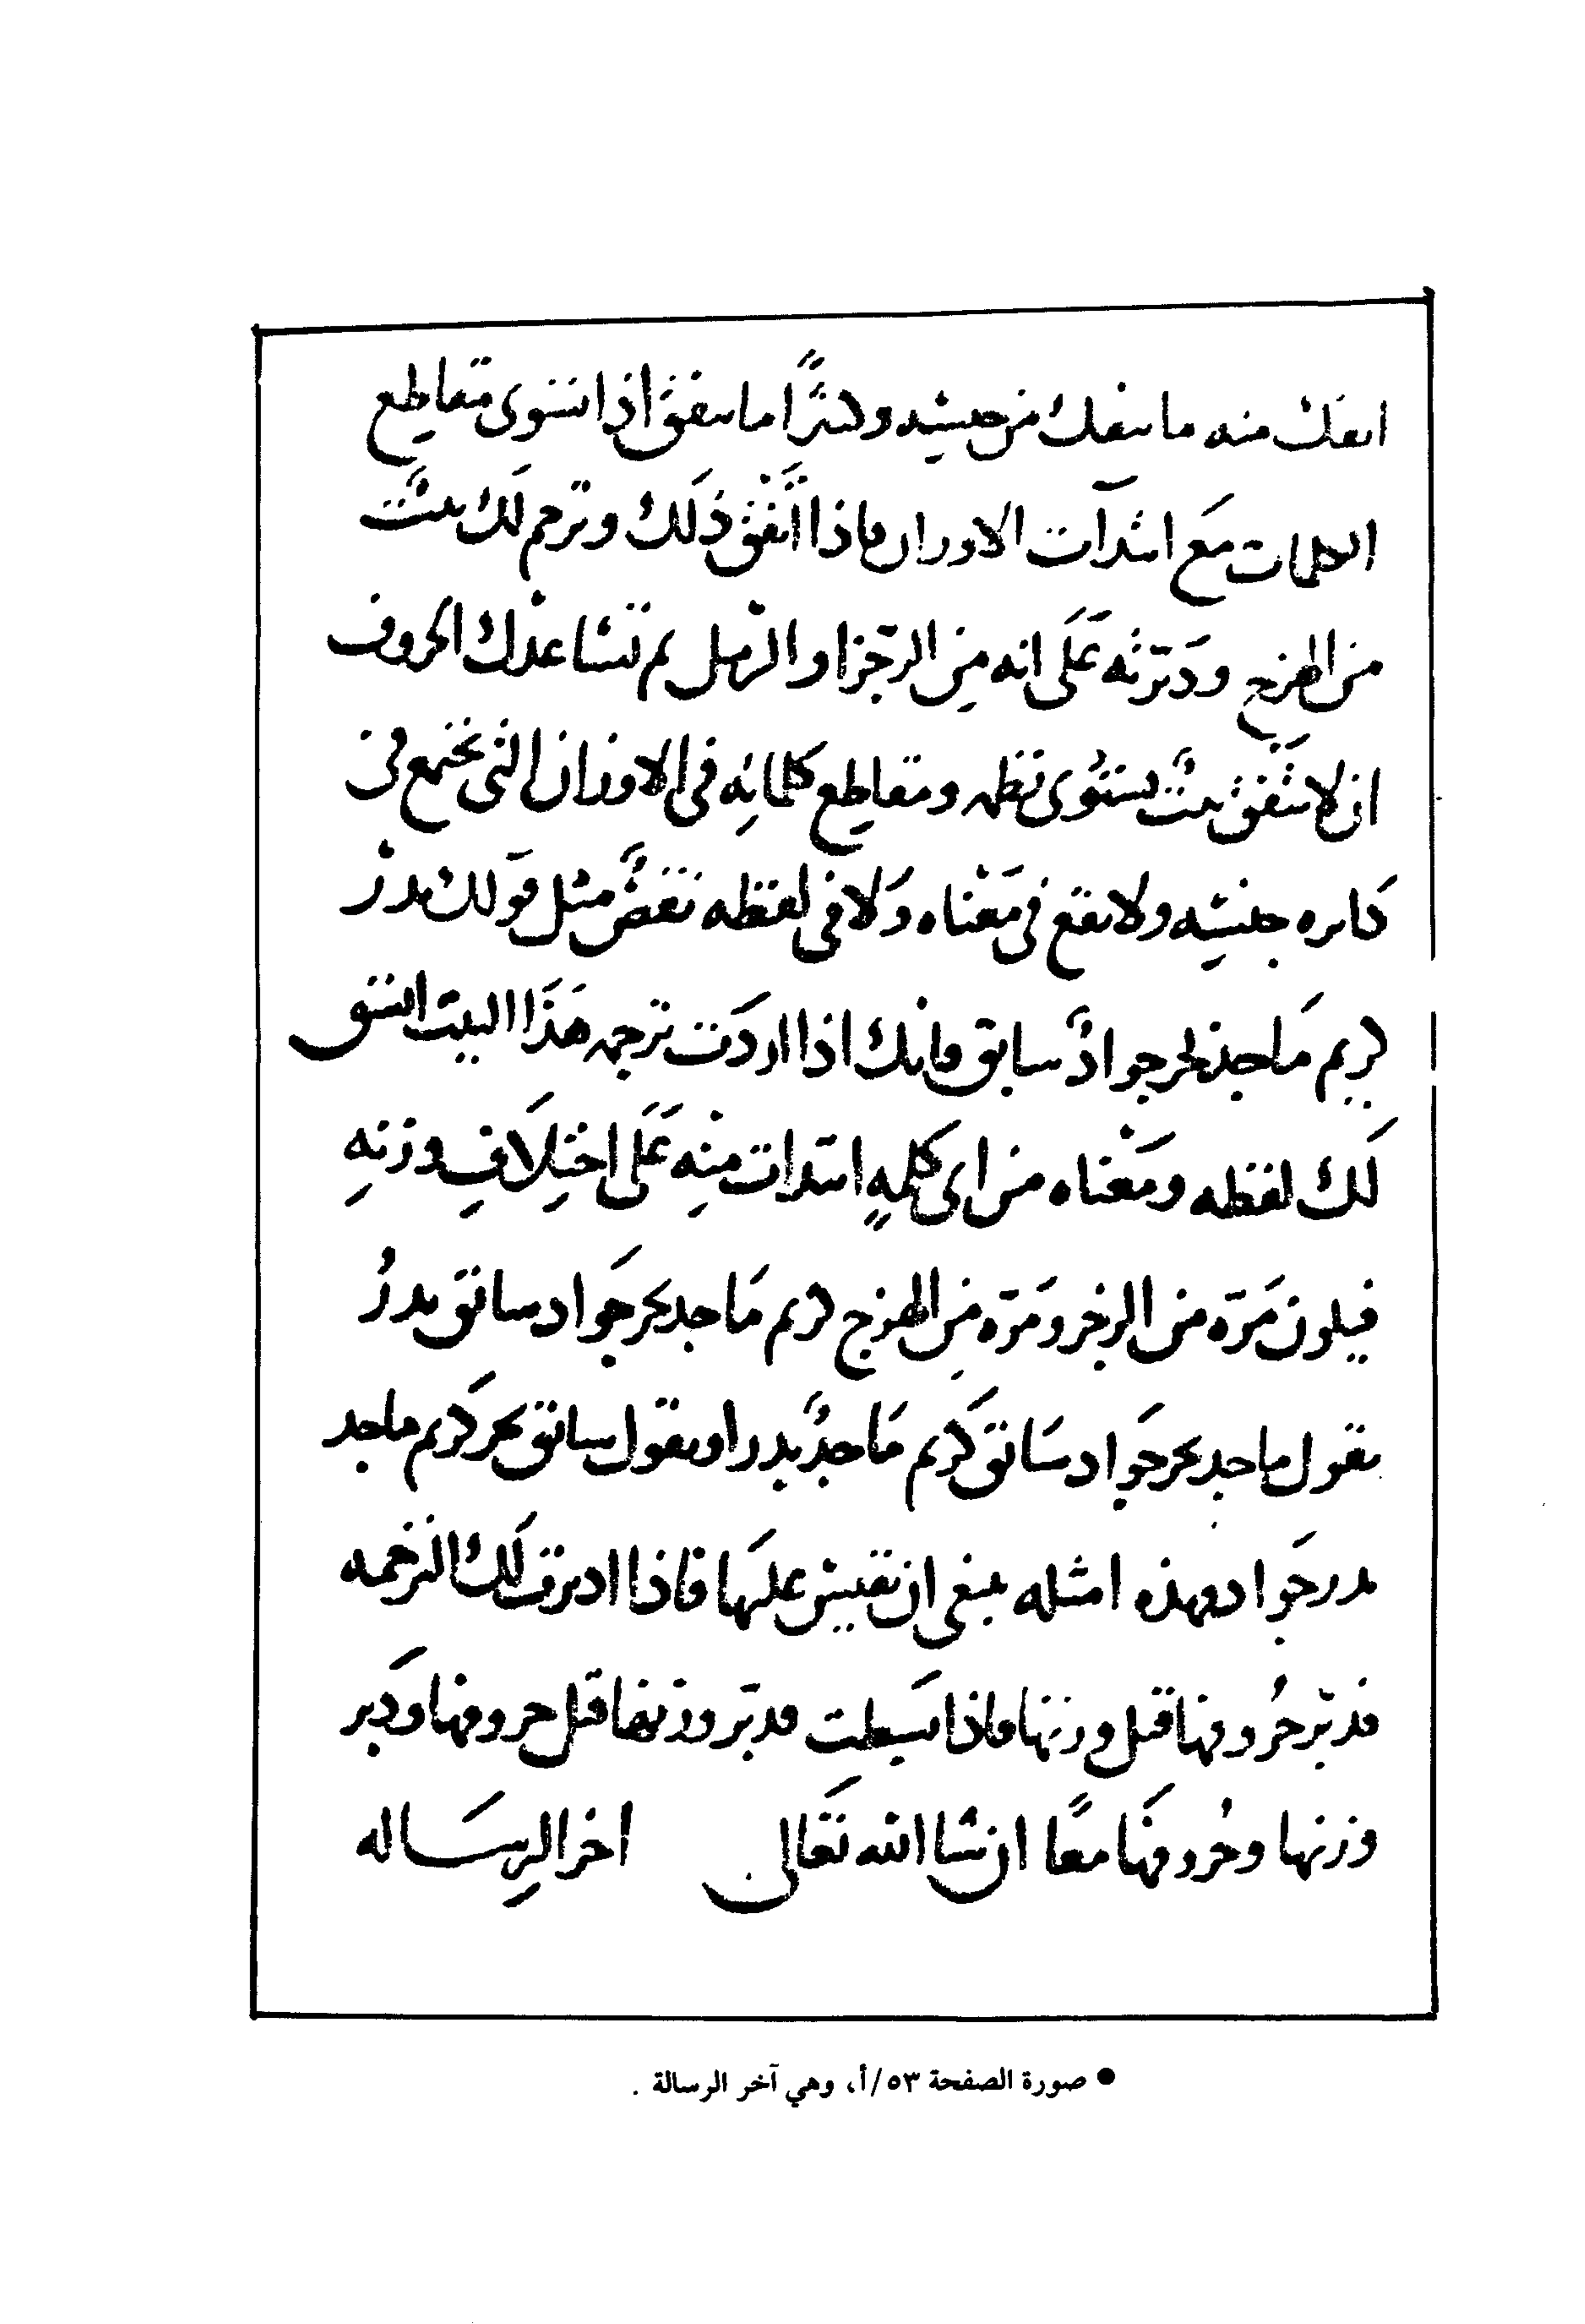 انفك منه ما ينفك من جنسه وكثيرًا ما يتفق اذا استوى مقاطع
الكلمات مع ابتدآت الاوزان فاذا اتَّفق ذَلك وترجم لَك بيتٌ
من الهزج ودَبّرته عَلَى انه مِن الرّجز او الرّمل لم تساعدْك الحروف
ان لا يتفق بيتٌ يستوى نظمه ومقاطع كلماتِه في الاوزان التى تجتمع فى
دَايره جنسِه ولا يقع في مَعْناه وَلا فى لفظه نقصٌ مثل قَولك بدرٌ
كريم مَاجد بحر جوادٌ سابق فانك اذا اردَت ترجمه هَذَا البيت اتسق
لَك لفظه ومَعْناه من اى كلمهٍ ابتدات منِه عَلَى اختِلَافِ وزنهِ
فيكون مَرّه من الرجز ومَرّه مِن الهزج كريم مَاجد بحر جَواد سابق بدرُ
تقول ماجد بحر جَواد سَابق كَريم مَاجدٌ بدر او تقول سابق بحر كَريم ماجد
بدر جَواد وهذه امثله ينبغى ان تقيس علَيها فاذا ادبرت لَك الترجمه
فدبّر حُروفها قبل وزنها فاذا تسبطت فدبّر وزنها قبل حروفها ودَبر
وزنها وحُروفهَا معًا ان شا الله تعَالى اخر الرِسَاله
● صورة الصفحة ٥٣/أ، وهي آخر الرسالة .